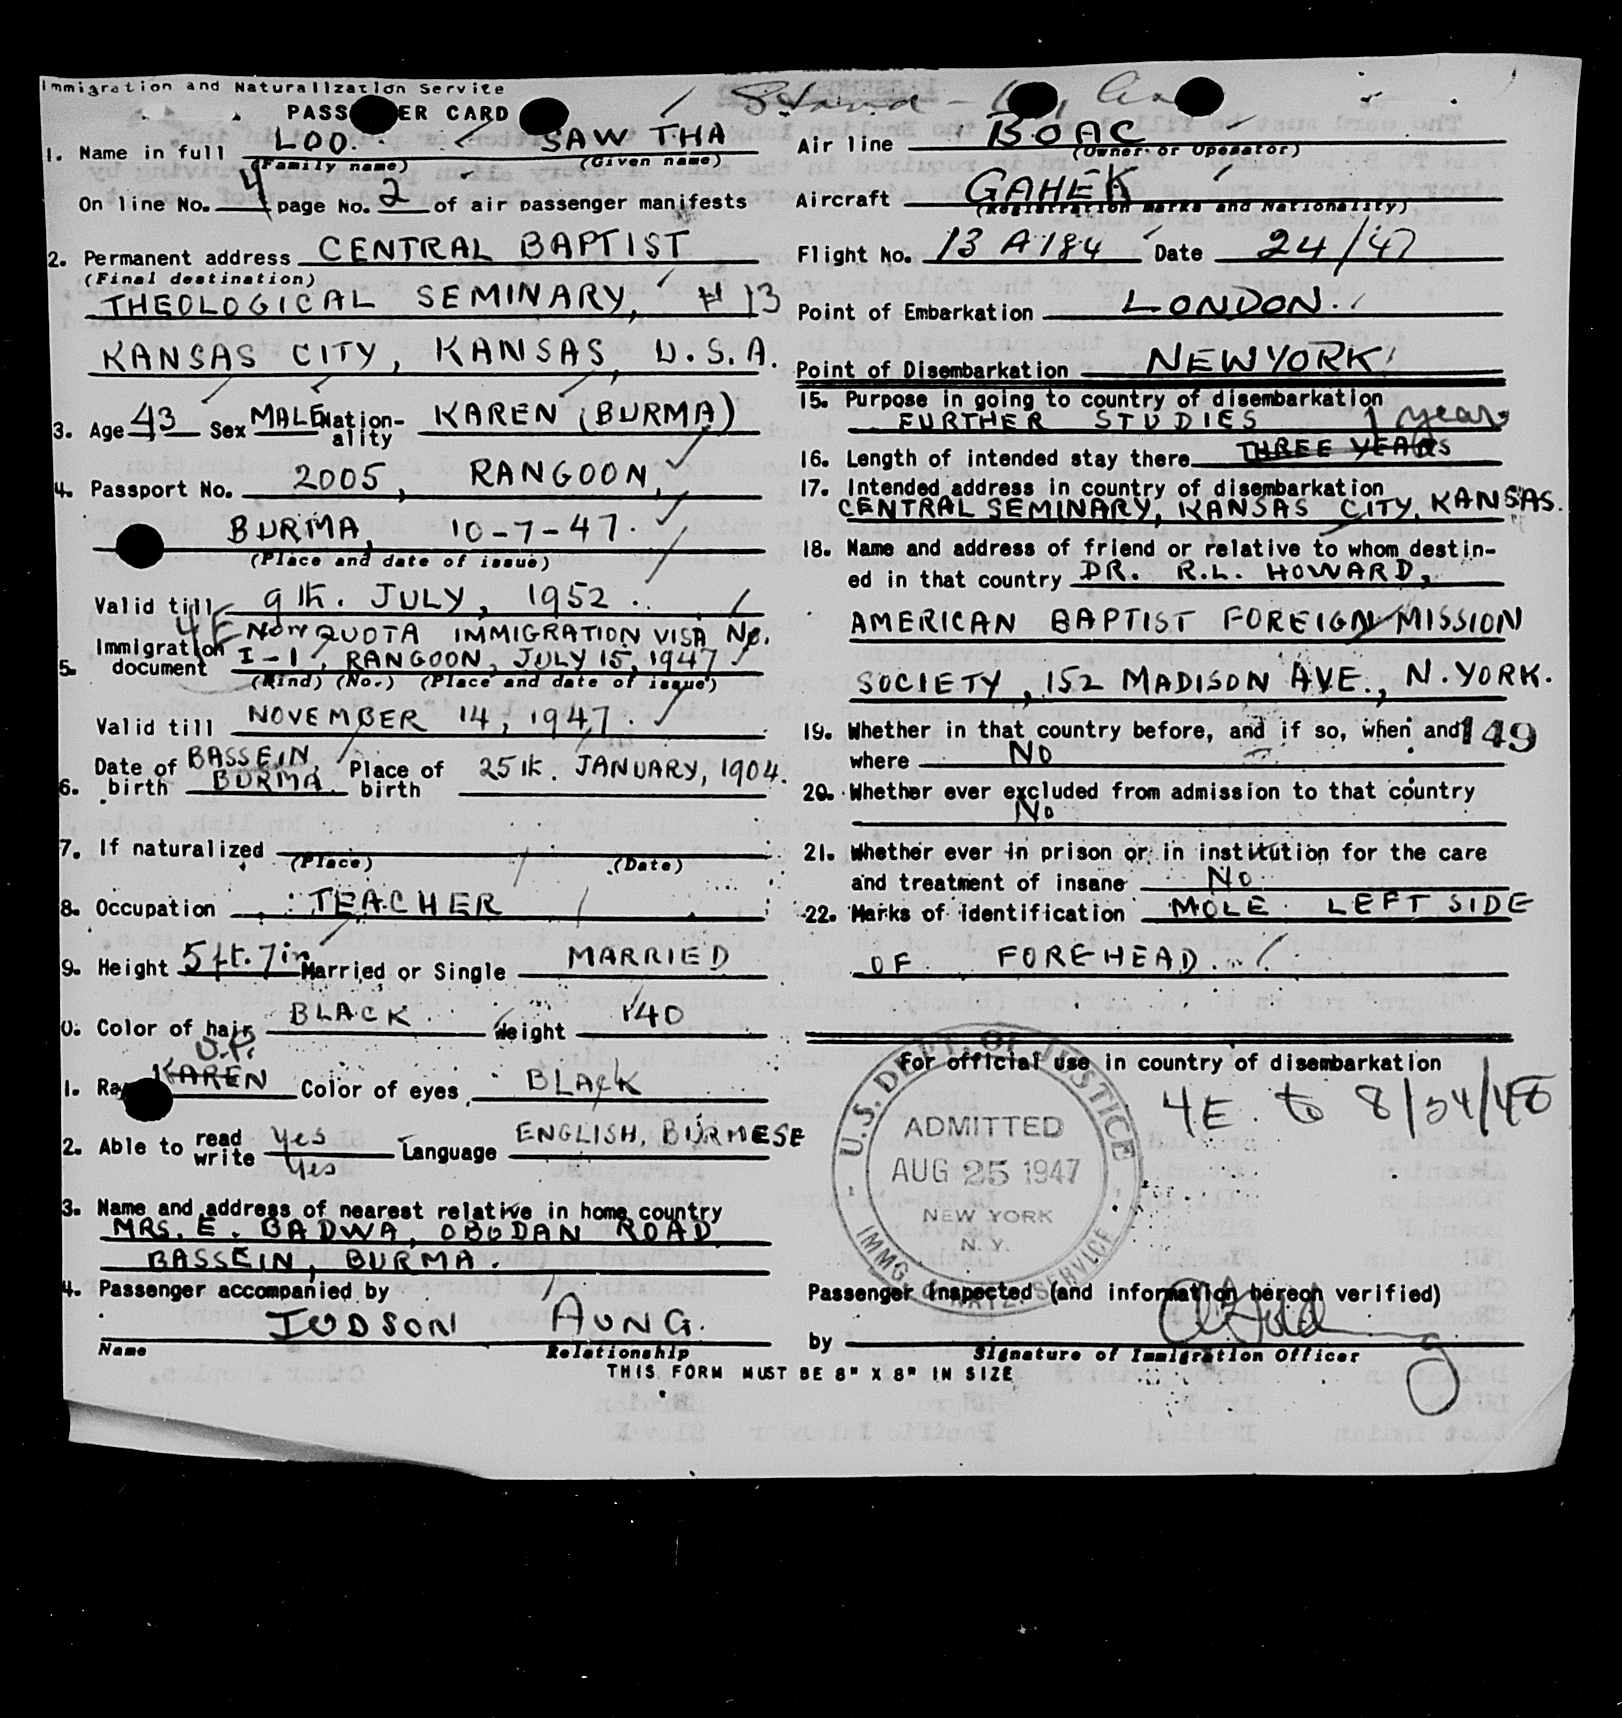 Immigration and Naturalization Service
PASS ER CARD
1. Name in full LOO. SAW THA
(Family name) (Given name)
On line No. 4 page No. 2 of air passenger manifests
2. Permanent address CENTRAL BAPTIST
(Final destination)
THEOLOGICAL SEMINARY, # 13
KANSAS CITY, KANSAS, U.S.A.
3. Age 43 Sex MALE Nation-ality KAREN (BURMA)
4. Passport No. 2005, RANGOON,
BURMA, 10-7-47.
(Place and date of issue)
Valid till 9th. JULY, 1952.
4E Non QUOTA IMMIGRATION VISA No.
5. Immigration document I-1, RANGOON, JULY 15, 1947
(Kind) (No.) (Place and date of issue)
Valid till NOVEMBER 14, 1947.
6. Date of birth BASSEIN, BURMA Place of birth 25th. JANUARY, 1904.
7. If naturalized
(Place) (Date)
8. Occupation TEACHER
9. Height 5ft. 7in Married or Single MARRIED
0. Color of hair BLACK Weight 140
1. Ra KAREN Color of eyes BLACK
2. Able to read yes
write yes Language ENGLISH, BURMESE
3. Name and address of nearest relative in home country
MRS. E. BADWA, OBODAN ROAD
BASSEIN, BURMA.
4. Passenger accompanied by
JUDSON AUNG.
Name Relationship
Air line BOAC
(Owner or Operator)
Aircraft GAHEK
(Registration marks and Nationality)
Flight No. 13 A184 Date 24/47
Point of Embarkation LONDON.
Point of Disembarkation NEW YORK
15. Purpose in going to country of disembarkation
FURTHER STUDIES 1 year
16. Length of intended stay there THREE YEARS
17. Intended address in country of disembarkation
CENTRAL SEMINARY, KANSAS CITY, KANSAS.
18. Name and address of friend or relative to whom destin-
ed in that country DR. R.L. HOWARD,
AMERICAN BAPTIST FOREIGN MISSION
SOCIETY, 152 MADISON AVE., N. YORK.
19. Whether in that country before, and if so, when and 149
where NO
20. Whether ever excluded from admission to that country
No
21. Whether ever in prison or in institution for the care
and treatment of insane No
22. Marks of identification MOLE LEFT SIDE
OF FOREHEAD.
For official use in country of disembarkation
4E. to
U.S. DEPT. OF JUSTICE
ADMITTED
AUG 25 1947
NEW YORK
N. Y.
IMMG. & NATZ. SERVICE
Passenger Inspected (and information hereon verified)
by
Signature of Immigration Officer
THIS FORM MUST BE 8" X 8" IN SIZE